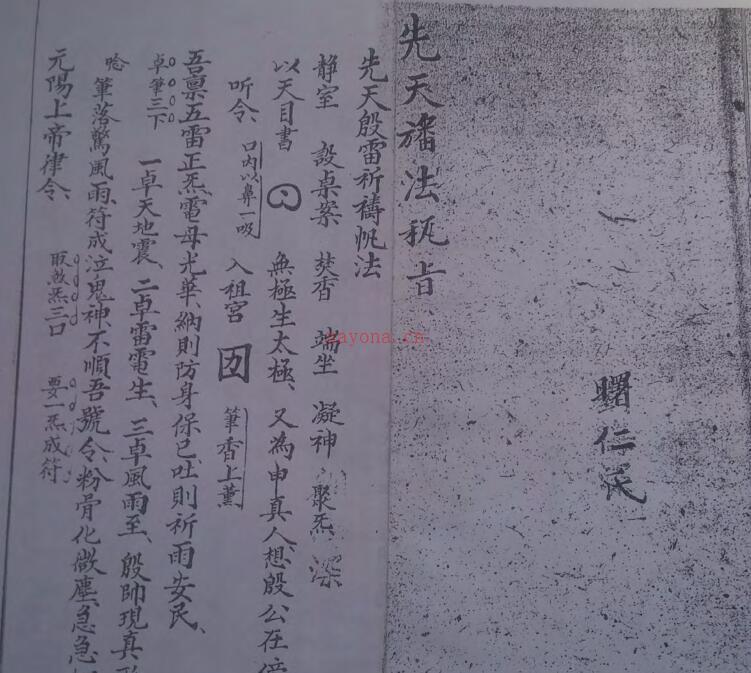 曙仁
先天旛法秘旨
先天殷雷祈禱帆法
静室 設桌案 焚香 端坐 凝神 聚炁 深
以天目書 無極生太極、又為申真人、想殷公在
听令、口内以鼻一吸 入祖宮 筆香上薰
吾禀五雷正炁、雷母光華、納則防身保己、吐則祈雨安民、
卓筆三下 一卓天地震、二卓雷電生、三卓風雨至、殷帅現真
唸 筆落驚風雨、符成泣鬼神、不順吾號令、粉骨化微塵、急急
元陽上帝律令、 取煞炁三口 要一炁成符
zayona.cn